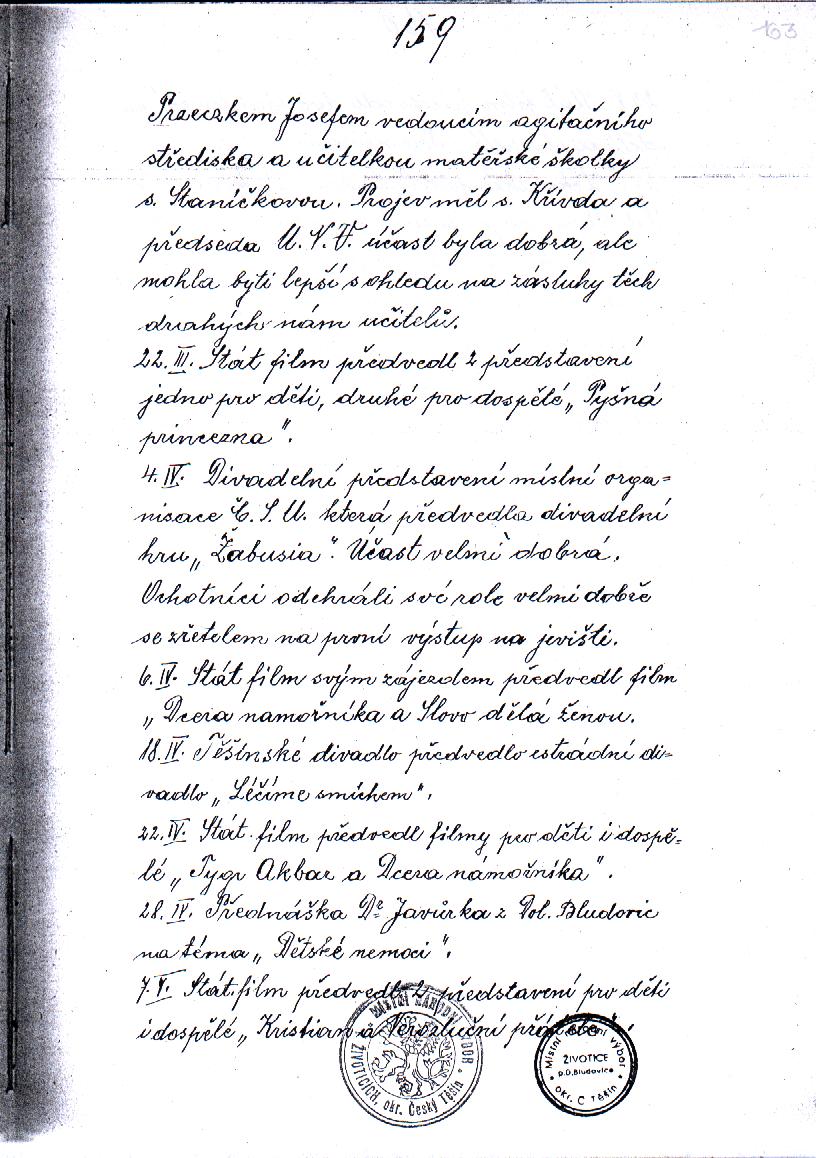 159
103
Praeczkem Josefem vedoucím agitačního
střediska a učitelkou mateřské školky
s. Staníčkovou. Projev měl s. Křivda a
předseda U.N.F. účast byla dobrá, ale
mohla byti lepší s ohledu na zásluhy těch
drahých nám učitelů.
22.III. Stát film předvedl 2 představení
jedno pro děti, druhé pro dospělé „Pyšná
princezna".
4.IV. Divadelní představení místní orga=
nisace Č.S.U. která předvedla divadelní
hru „Žabusia". Účast velmi dobrá.
Ochotníci odehráli své role velmi dobře
se zřetelem na první výstup na jevišti.
6.IV. Stát film svým zájezdem předvedl film
„Dcera namořníka a Slovo dělá ženou.
18.IV. Těšínské divadlo předvedlo estrádní di=
vadlo „Léčíme smíchem".
22.IV. Stát. film předvedl filmy pro děti i dospě=
lé „Tygr Akbar a Dcera námořníka".
28.IV. Přednáška Dr Javůrka z Dol. Bludovic
na téma „Dětské nemoci".
7.V. Stát. film předvedl 2 představení pro děti
i dospělé „Kristian a Nerozluční přátelé"
MÍSTNÍ NÁRODNÍ VÝBOR
ŽIVOTICÍCH, okr. Český Těšín
Místní národní výbor
ŽIVOTICE
p.D.Bludovice
okr. C Těšín